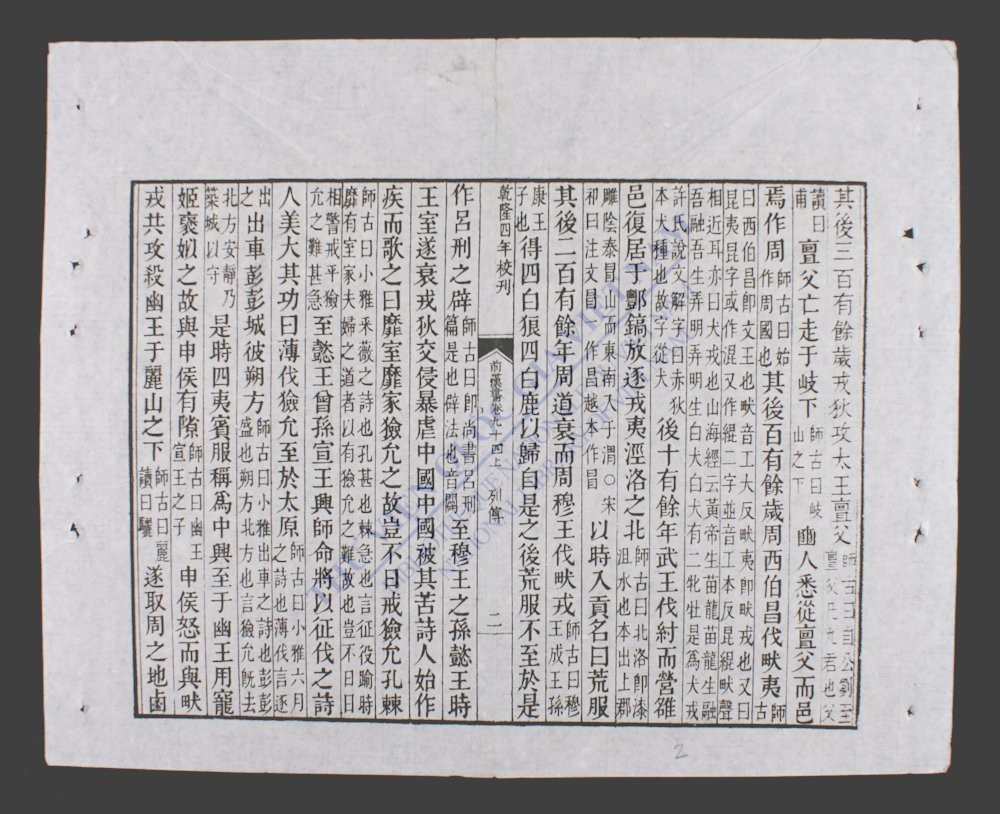 其後三百有餘歲戎狄攻太王亶父師古曰自公劉至亶父凡九君也父
讀曰甫亶父亡走于岐下師古曰岐山之下豳人悉從亶父而邑
焉作周師古曰始作周國也其後百有餘歲周西伯昌伐畎夷師古
曰西伯昌卽文王也畎音工犬反畎夷卽畎戎也又曰昆夷昆字或作混又作緄二字並音工本反昆緄畎聲
相近耳亦曰犬戎也山海經云黃帝生苗龍苗龍生融吾融吾生弄明弄明生白犬白犬有二牝牡是爲犬戎
許氏說文解字曰赤狄本犬種也故字從犬後十有餘年武王伐紂而營雒
邑復居于酆鎬放逐戎夷涇洛之北師古曰北洛卽漆沮水也本出上郡
雕陰泰冒山而東南入于渭○宋祁曰注文昌一作昌越本作昌以時入貢名曰荒服
其後二百有餘年周道衰而周穆王伐畎戎師古曰穆王成王孫
康王子也得四白狼四白鹿以歸自是之後荒服不至於是
乾隆四年校刊
前漢書卷九十四上 列傳
二
作呂刑之辟師古曰卽尚書呂刑篇是也辟法也音闢至穆王之孫懿王時
王室遂衰戎狄交侵暴虐中國中國被其苦詩人始作
疾而歌之曰靡室靡家獫允之故豈不日戒獫允孔棘
師古曰小雅采薇之詩也孔甚也棘急也言征役踰時靡有室家夫婦之道者以有獫允之難故也豈不日日
相警戒乎獫允之難甚急至懿王曾孫宣王興師命將以征伐之詩
人美大其功曰薄伐獫允至於太原師古曰小雅六月之詩也薄伐言逐
出之出車彭彭城彼朔方師古曰小雅出車之詩也彭彭盛也朔方北方也言獫允旣去
北方安靜乃築城以守是時四夷賓服稱爲中興至于幽王用寵
姬褒姒之故與申侯有隙師古曰幽王宣王之子申侯怒而與畎
戎共攻殺幽王于麗山之下師古曰麗讀曰驪遂取周之地鹵
2